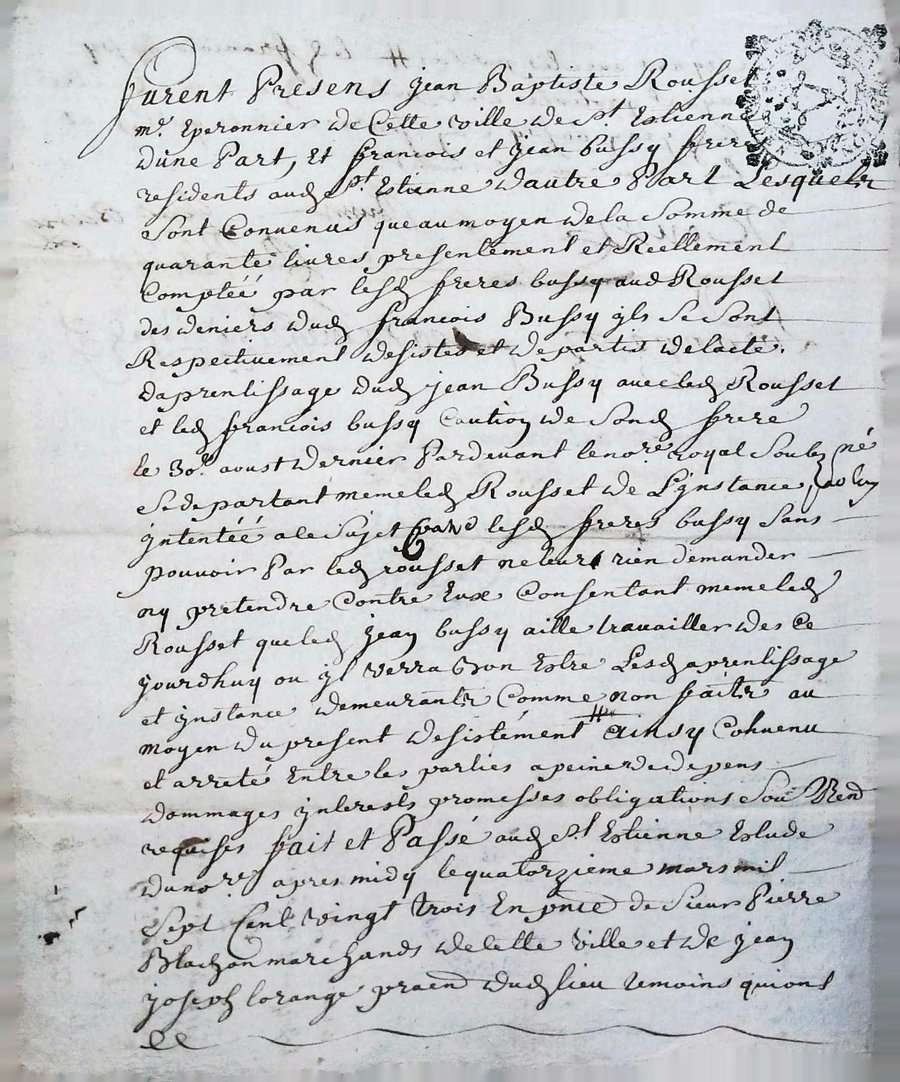 furent Presens jean Baptiste Rousset
m.e Eperonnier de Cette ville de st Estienne
dune Part, Et francois et jean bussy freres
residents aud st Estienne dautre Part Lesquels
Sont Convenus que au moyen de la Somme de
quarante livres presentement et Reellement
Comptéé par lesd freres bussy aud Rousset
des deniers dud francois Bussy yls Se Sont
Respectivement desistes et departis de lacte
daprentissage dud jean Bussy avec led Rousset
et led francois bussy Caution de Sond frere
le 30.e aoust dernier Pardevant le no.re royal Soubz né
Se departant meme led Rousset de Lynstance
yntentéé a le Sujet lesd freres bussy Sans
pouvoir Par led rousset ne leur rien demander
ny pretendre Contre Eux Consentant meme led
Rousset que led jean bussy aille travailler des Ce
jourdhuy ou yl verra bon Estre Lesd aprentissage
et ynstance demeurants Comme non faits au
moyen du present desistement ainsy Convenu
et arreté Entre les parties a peine de depens
dommages ynterests promesses obligations Sou Ren
requises fait et Passé aud st Estienne Estude
du no.re apres midy le quatorzieme mars mil
Sept Cent vingt trois En pnce de Sieur Pierre
Blachon marchands de cette ville et de jean
joseph lorange praen dud lieu temoins qui ont